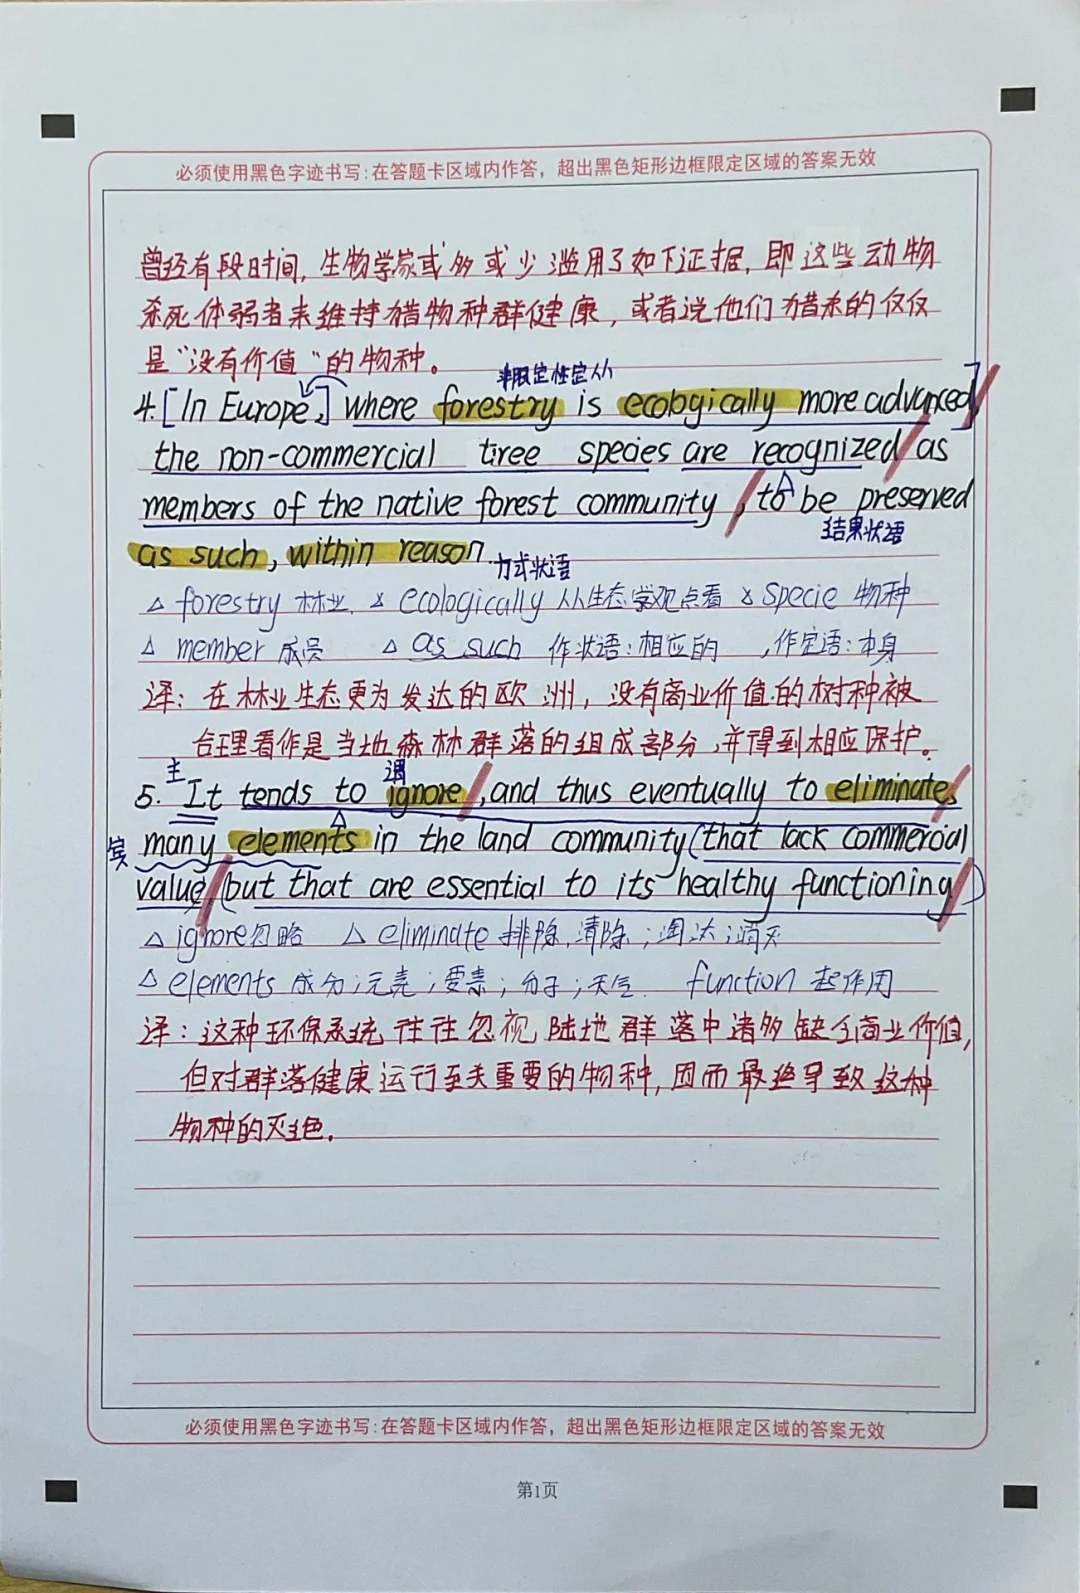 必须使用黑色字迹书写:在答题卡区域内作答，超出黑色矩形边框限定区域的答案无效
曾经有段时间,生物学家或多或少滥用了如下证据,即这些动物
杀死体弱者来维持猎物种群健康,或者说他们猎杀的仅仅
是"没有价值"的物种。
非限定性定从
4.[In Europe,] where forestry is ecologically more advanced,
the non-commercial tiree species are recognized as
members of the native forest community, to be preserved
结果状语
as such, within reason.
方式状语
△ forestry 林业. △ ecologically 从生态学观点看 △ specie 物种
△ member 成员 △ as such 作状语:相应的 ,作定语:本身
译: 在林业生态更为发达的欧洲, 没有商业价值的树种被
合理看作是当地森林群落的组成部分,并得到相应保护。
主 谓
5. It tends to ignore, and thus eventually to eliminate,
宾 many elements in the land community(that lack commercial
value,(but that are essential to its healthy functioning)
△ ignore忽略 △ eliminate 排除,清除;淘汰;消灭
△ elements 成分;元素;要素;分子;天气. function 起作用
译:这种环保系统往往忽视陆地群落中诸多缺乏商业价值,
但对群落健康运行至关重要的物种,因而最终导致这种
物种的灭绝.
必须使用黑色字迹书写:在答题卡区域内作答，超出黑色矩形边框限定区域的答案无效
第1页